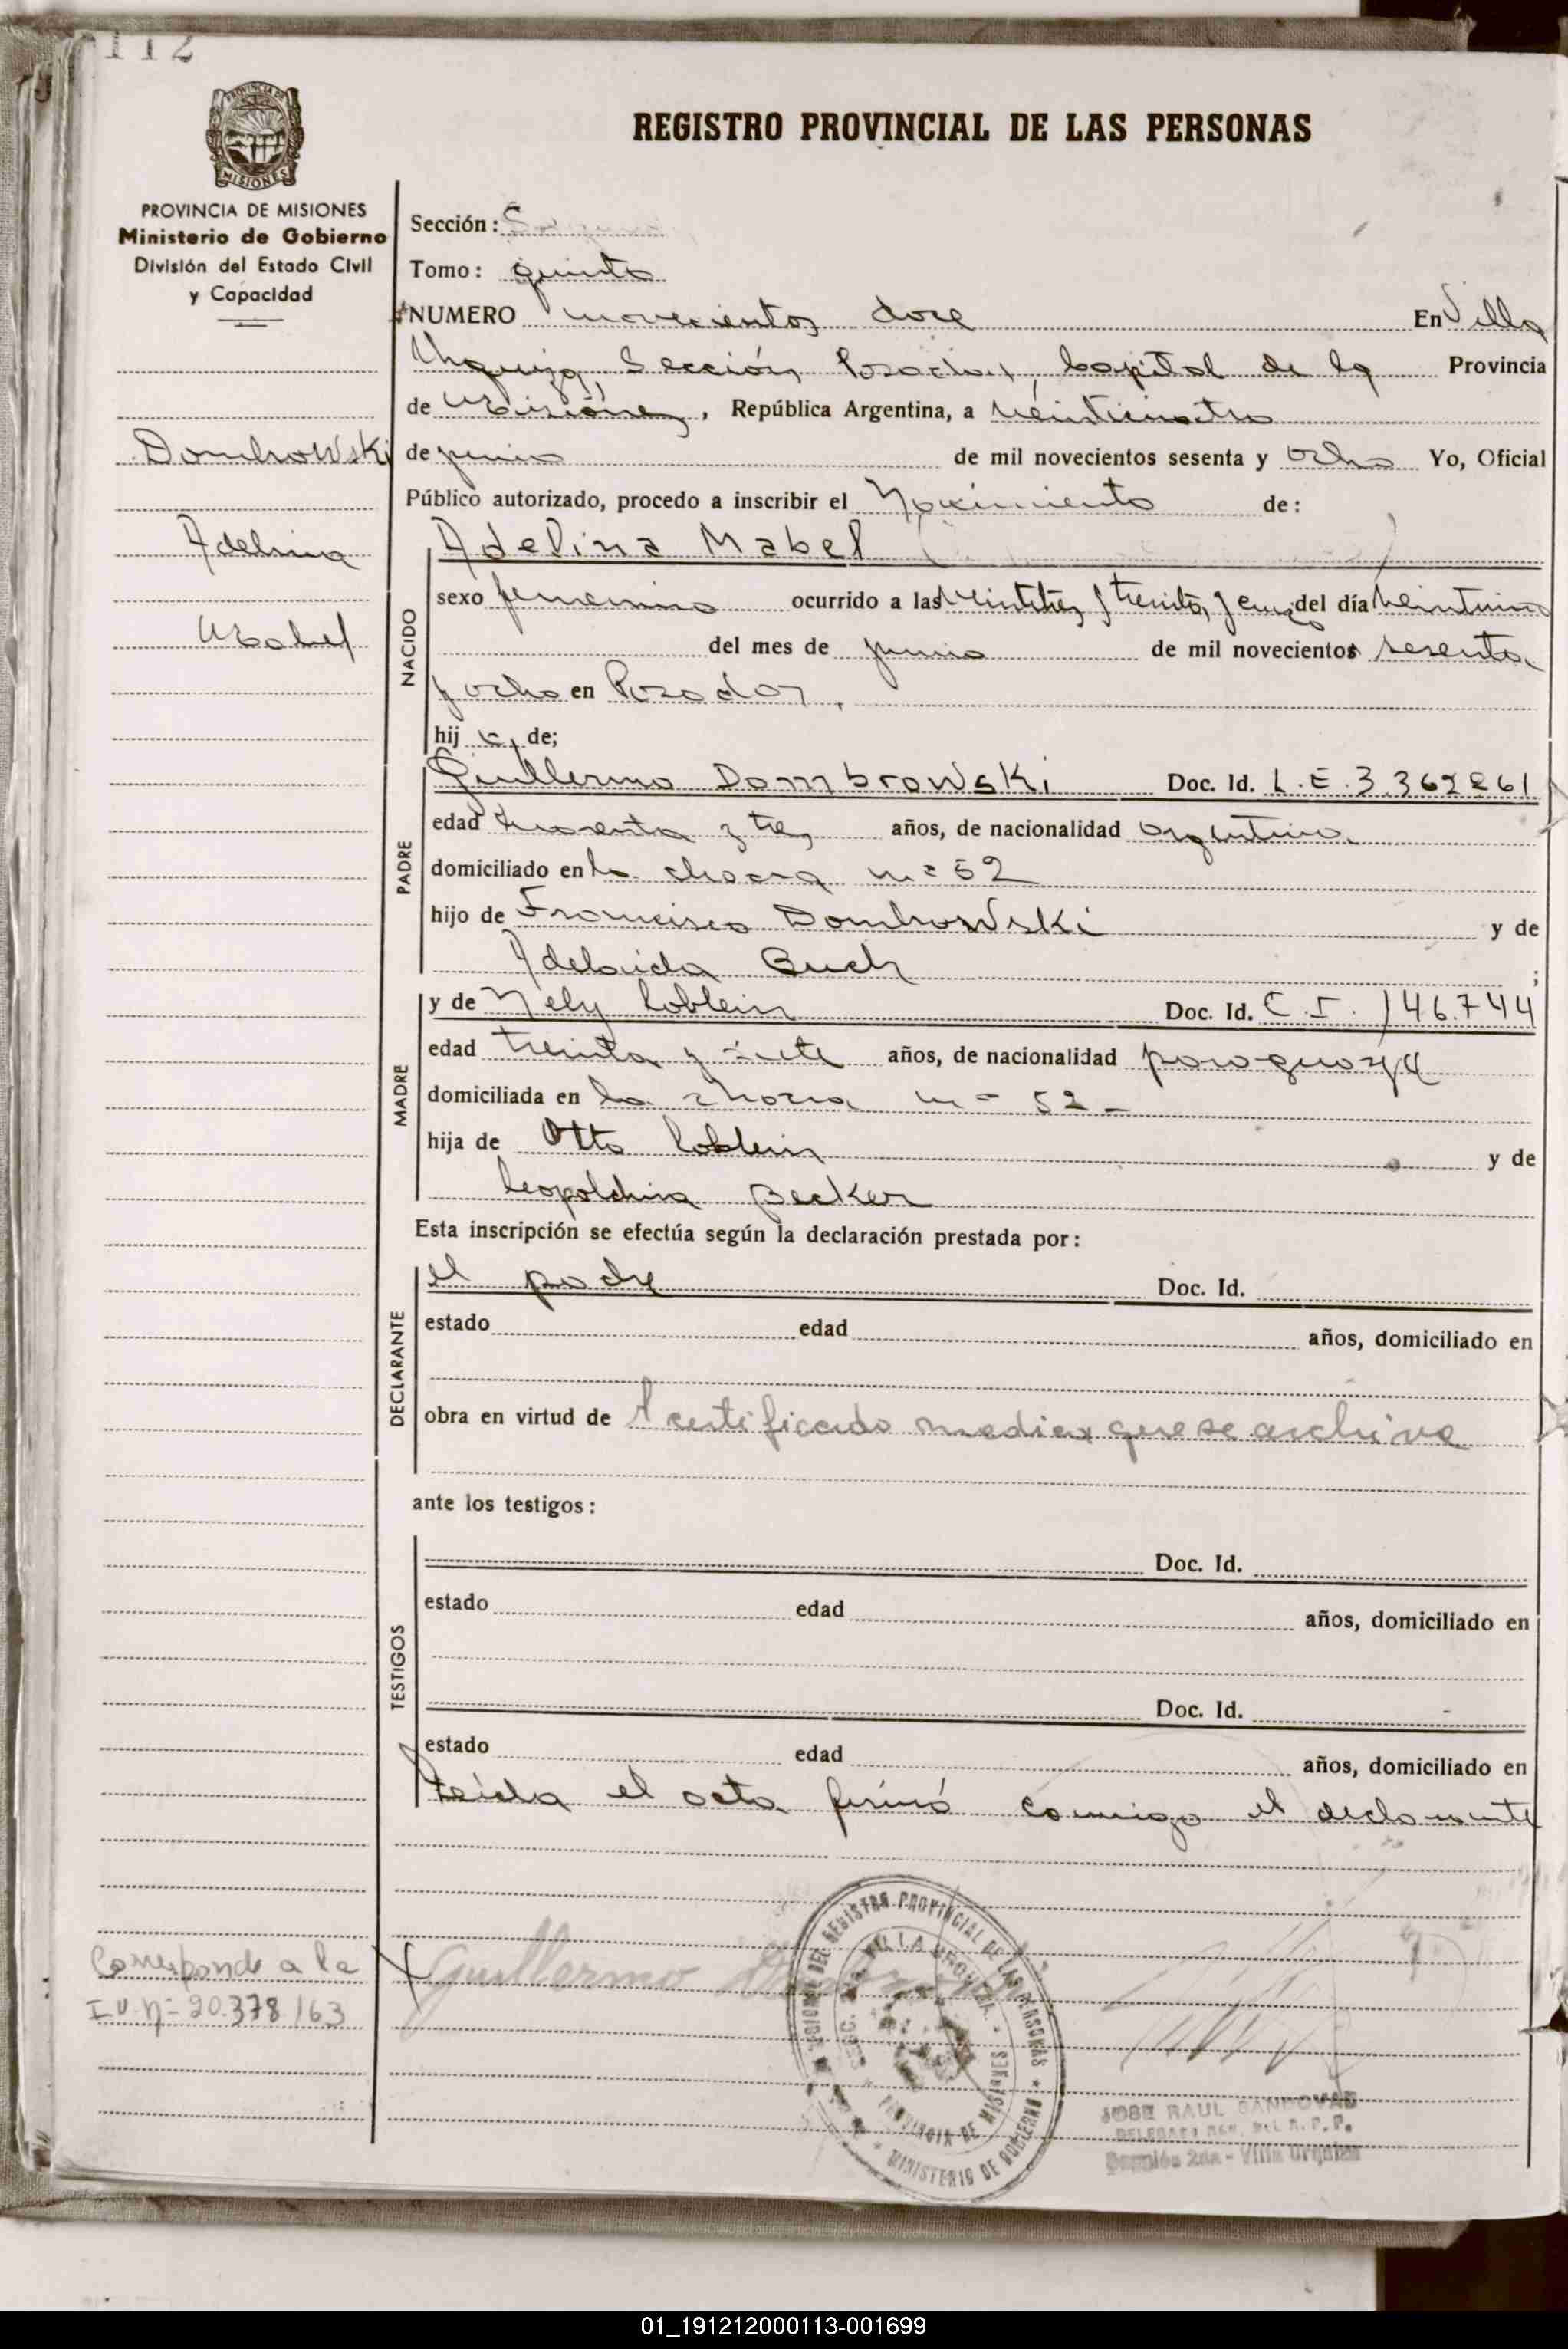 112
PROVINCIA DE MISIONES
MISIONES
PROVINCIA DE MISIONES
Ministerio de Gobierno
División del Estado Civil
y Capacidad
Dombrowski
Adelina
Mabel
Corresponde a la
I.V. Nº 20.378/63
REGISTRO PROVINCIAL DE LAS PERSONAS
Sección:
Tomo: quinto
NUMERO novecientos doce En Villa
Urquiza, Sección Posadas, Capital de la Provincia
de Misiones, República Argentina, a veinticuatro
de junio de mil novecientos sesenta y ocho Yo, Oficial
Público autorizado, procedo a inscribir el Nacimiento de:
NACIDO
Adelina Mabel
sexo femenino ocurrido a las veintitrés y treinta y cinco del día veintiuno
del mes de junio de mil novecientos sesenta
y ocho en Posadas,
hij a, de;
PADRE
Guillermo Dombrowski Doc. Id. L.E. 3.362261
edad cuarenta y tres años, de nacionalidad argentino
domiciliado en la chacra nº 52
hijo de Francisco Dombrowski y de
Adelaida Buch ;
MADRE
y de Nely Loblein Doc. Id. C.I. 146.744
edad treinta y siete años, de nacionalidad paraguaya
domiciliada en la chacra nº 52 -
hija de Otto Loblein y de
Leopoldina Becker
Esta inscripción se efectúa según la declaración prestada por:
DECLARANTE
el padre Doc. Id.
estado edad años, domiciliado en
obra en virtud de certificado medico que se archiva
ante los testigos:
TESTIGOS
Doc. Id.
estado edad años, domiciliado en
Doc. Id.
estado edad años, domiciliado en
Leida el acta firmó conmigo el declarante
Guillermo
REGISTRO PROVINCIAL DE LAS PERSONAS
VILLA URQUIZA
PROVINCIA DE MISIONES
MINISTERIO DE GOBIERNO
JOSE RAUL SANDOVAL
DEL R. P. P.
Sección 2da - Villa Urquiza
01_191212000113-001699